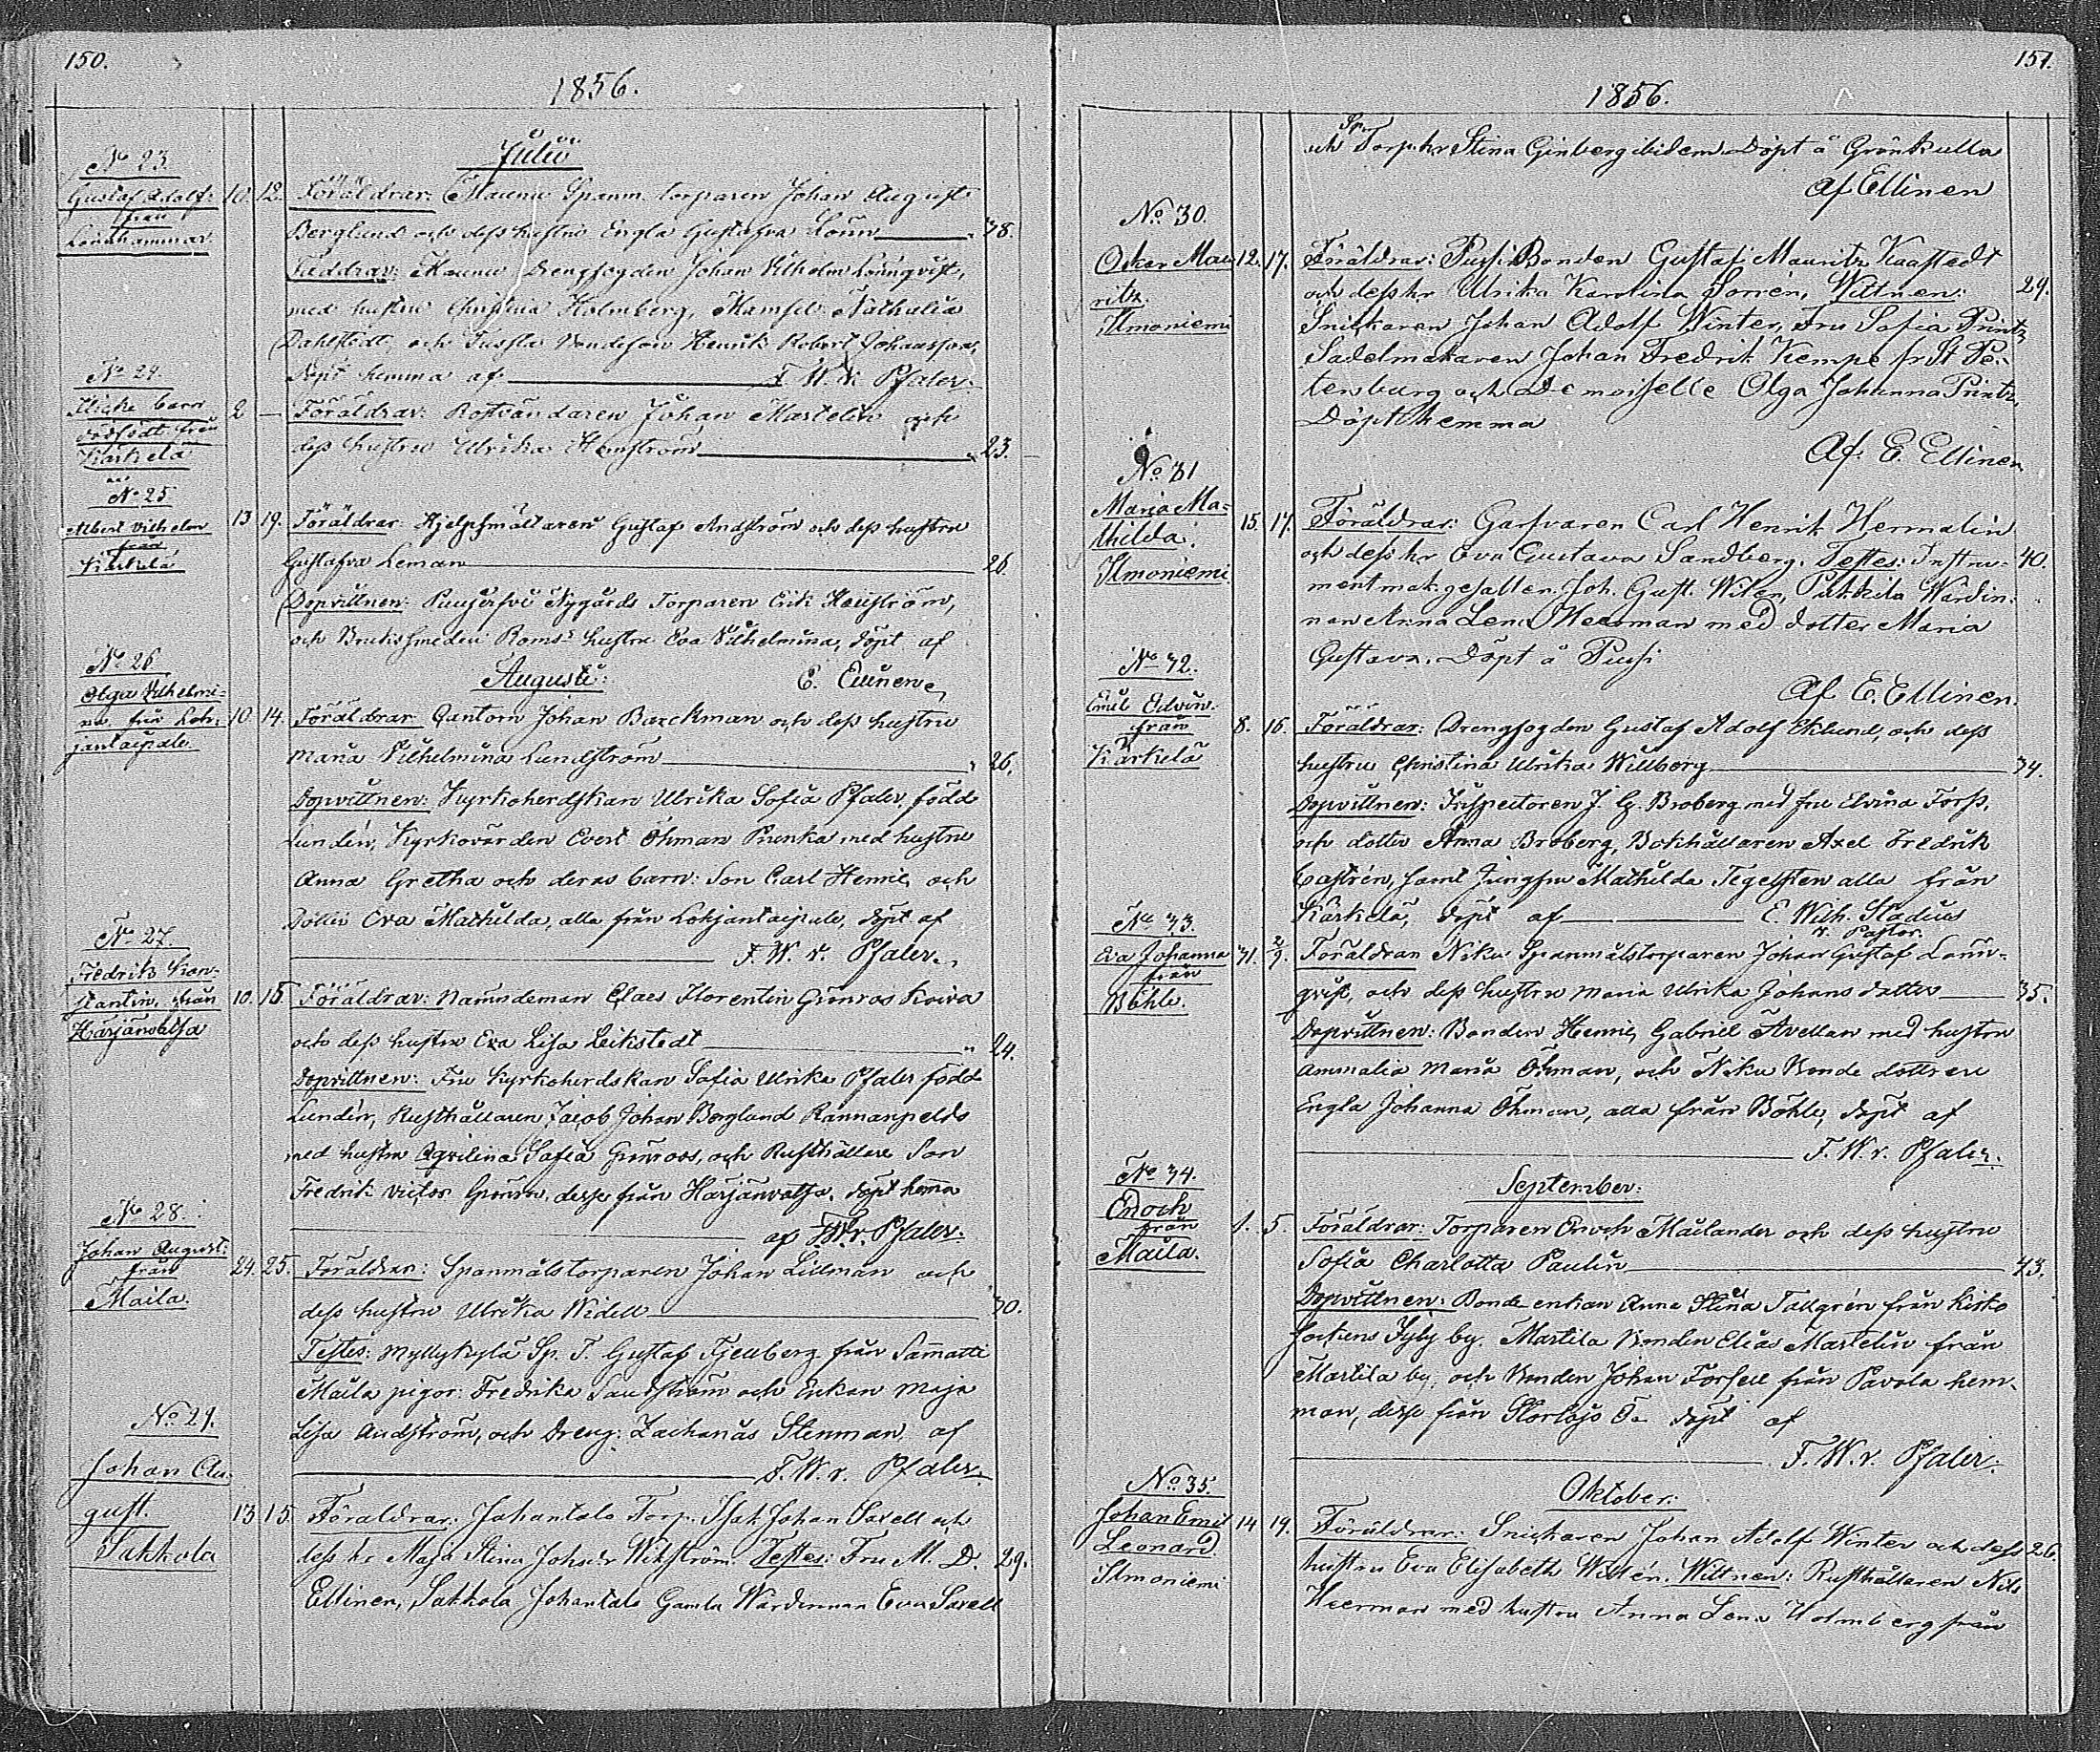 150.
1856.
Julii
No 23.
Gustaf Adolf
från
Lönnhammar.
10. 12. Föräldrar: Maunu Spanm. torparen Johan August
Berglund och dess hustru Engla Gustafva Lönn 38.
Faddrar: Maunu Drengfogden Johan Vilhelm Lönnqvist,
med hustru Christina Holmberg, Mamsell Nathalia
Dahlstedt, och Bondeson Henrik Robert Johansson,
döpt hemma af F. W. v. Pfaler.
No 24.
barn
dödfödt från
Kärkelä
2 — Föräldrar: Johan Martelin och
dess hustru Ulrika Hemström 23.
No 25
Albert Vilhelm
från
Kärkelä
13 19. Föräldrar Hjelpsmältaren Gustaf Andström och dess hustru
Gustafva Leman 26.
Dopvittnen: Nygårds Torparen Erik
och Bruksmeden Roms hustru Eva Vilhelmina, döpt af
E. Ellinen
Augusti:
No 26
Olga Vilhelmi-
na från Loh-
jantaipale.
10. 14. Föräldrar Cantorn Johan Barckman och dess hustru
Maria Vilhelmina Lundström 26.
Dopvittnen: Kyrkoherdskan Ulrika Sofia Pfaler, född
Lundén, Kyrkovärden Evert Öhman Prunka med hustru
Anna Gretha och deras barn: Son Carl Henric och
Dotter Eva Mathilda, alla från Lohjantaipale, döpt af
F. W. v. Pfaler.
No 27.
Fredrik Kon-
stantin, från
Härjänvatsa
10. 15 Föräldrar: Nämndeman Claes Florentin Grönroos Koiva
och dess hustru Eva Lisa Leikstedt 24.
Dopvittnen: Fru Kyrkoherdskan Sofia Ulrika Pfaler född
Lundén, Rusthållaren Jacob Johan Berglund Rannanpeldo
med hustru Aqvilina Sofia Grönroos, och Rusthållare Son
Fredrik Victor Grönroos, desse från Härjänvatsa. döpt hema
af F. W. v. Pfaler.
No 28.
Johan August:
från
Maila.
24. 25. Föräldrar: Spanmålstorparen Johan Lillman och
dess hustru Ulrika Widell 30.
Testes: Myllykylä Sp. T. Gustaf Fjellberg från Sammatti
Maila pigor: Fredrika Sandström och Enkan Maja
Lisa Andström, och Dreng: Zacharias Stenman, af
F. W. v. Pfaler.
No 29.
Johan Au-
gust.
Sakkola
13 15. Föräldrar: Johantalo Torp. Isak Johan Saxell och
dess hr Maja Stina Johsdr Wikström. Testes: Fru M. D. 29.
Ellinen, Sakkola Johantalo Gamla Wärdinnan Eva Saxell
151.
1856.
och Sp. Torp. hr Stina Ginberg ibidem. Döpt å Grönkulla
Af Ellinen
No 30.
Oskar Mau
ritz.
Ilmoniemi
12. 17. Föräldrar: Pussi Bonden Gustaf Mauritz Kaastedt
och dess hr Ulrika Karolina Sorrén, Wittnen: 29.
Snickaren Johan Adolf Winter, Fru Sofia Printz,
Sadelmakaren Johan Fredrik Kempe fr. St Pe-
tersburg och Demoiselle Olga Johanna Printz,
Döpt hemma
Af E. Ellinen
No 31
Maria Ma-
thilda.
Ilmoniemi.
15. 17. Föräldrar: Garfvaren Carl Henrik Hermalin
och dess hr Eva Gustava Sandberg. Testes: Instru- 40.
mentmak. gesällen Joh. Gust. Wiler, Pukkila Wärdin-
nan Anna Lena Heerman med dotter Maria
Gustava. Döpt å Pussi
Af E. Ellinen.
No 32.
Emil Edvin.
från
Kärkelä
8. 16. Föräldrar: Drengfogden Gustaf Adolf Eklund, och dess
hustru Christina Ulrika Willberg 34.
Dopvittnen: Inspectoren J. G. Broberg med fru Elvina Forss,
och dotter Anna Broberg, Bokhållaren Axel Fredrik
Castrén, samt Jungfru Mathilda Tegelsten alla från
Kärkelä, döpt af E. Wilh. Stadius
v. Pastor.
No 33.
Eva Johanna
från
Böhle.
31. 2/9. Föräldrar Niku Spanmålstorparen Johan Gustaf Lönn-
qvist, och dess hustru Maria Ulrika Johans dotter 35.
Dopvittnen: Bonden Henric Gabriel Avellan med hustru
Ammalia Maria Öhman, och Niku Bonde dottren
Engla Johanna Öhman, alla från Böhle, döpt af
F. W. v. Pfaler.
September:
No 34.
Enoch
från
Maila.
1. 5. Föräldrar: Torparen Enoch Mailander och dess hustru
Sofia Charlotta Paulin 43.
Dopvittnen: Bonde enkan Anna Stina Tallgrén från Kisko
sockens Jyly by. Martila Bonden Elias Martelin från
Martila by. och Bonden Johan Forsell från Pavola hem-
man, desse från Storlojo döpt af
F. W. v. Pfaler.
Oktober:
No 35.
Johan Emil
Leonard.
Ilmoniemi
14 19. Föräldrar: Snickaren Johan Adolf Winter och dess 26.
hustru Eva Elisabeth Willén. Wittnen: Rusthållaren Nils
Heerman med hustru Anna Lena Holmberg från